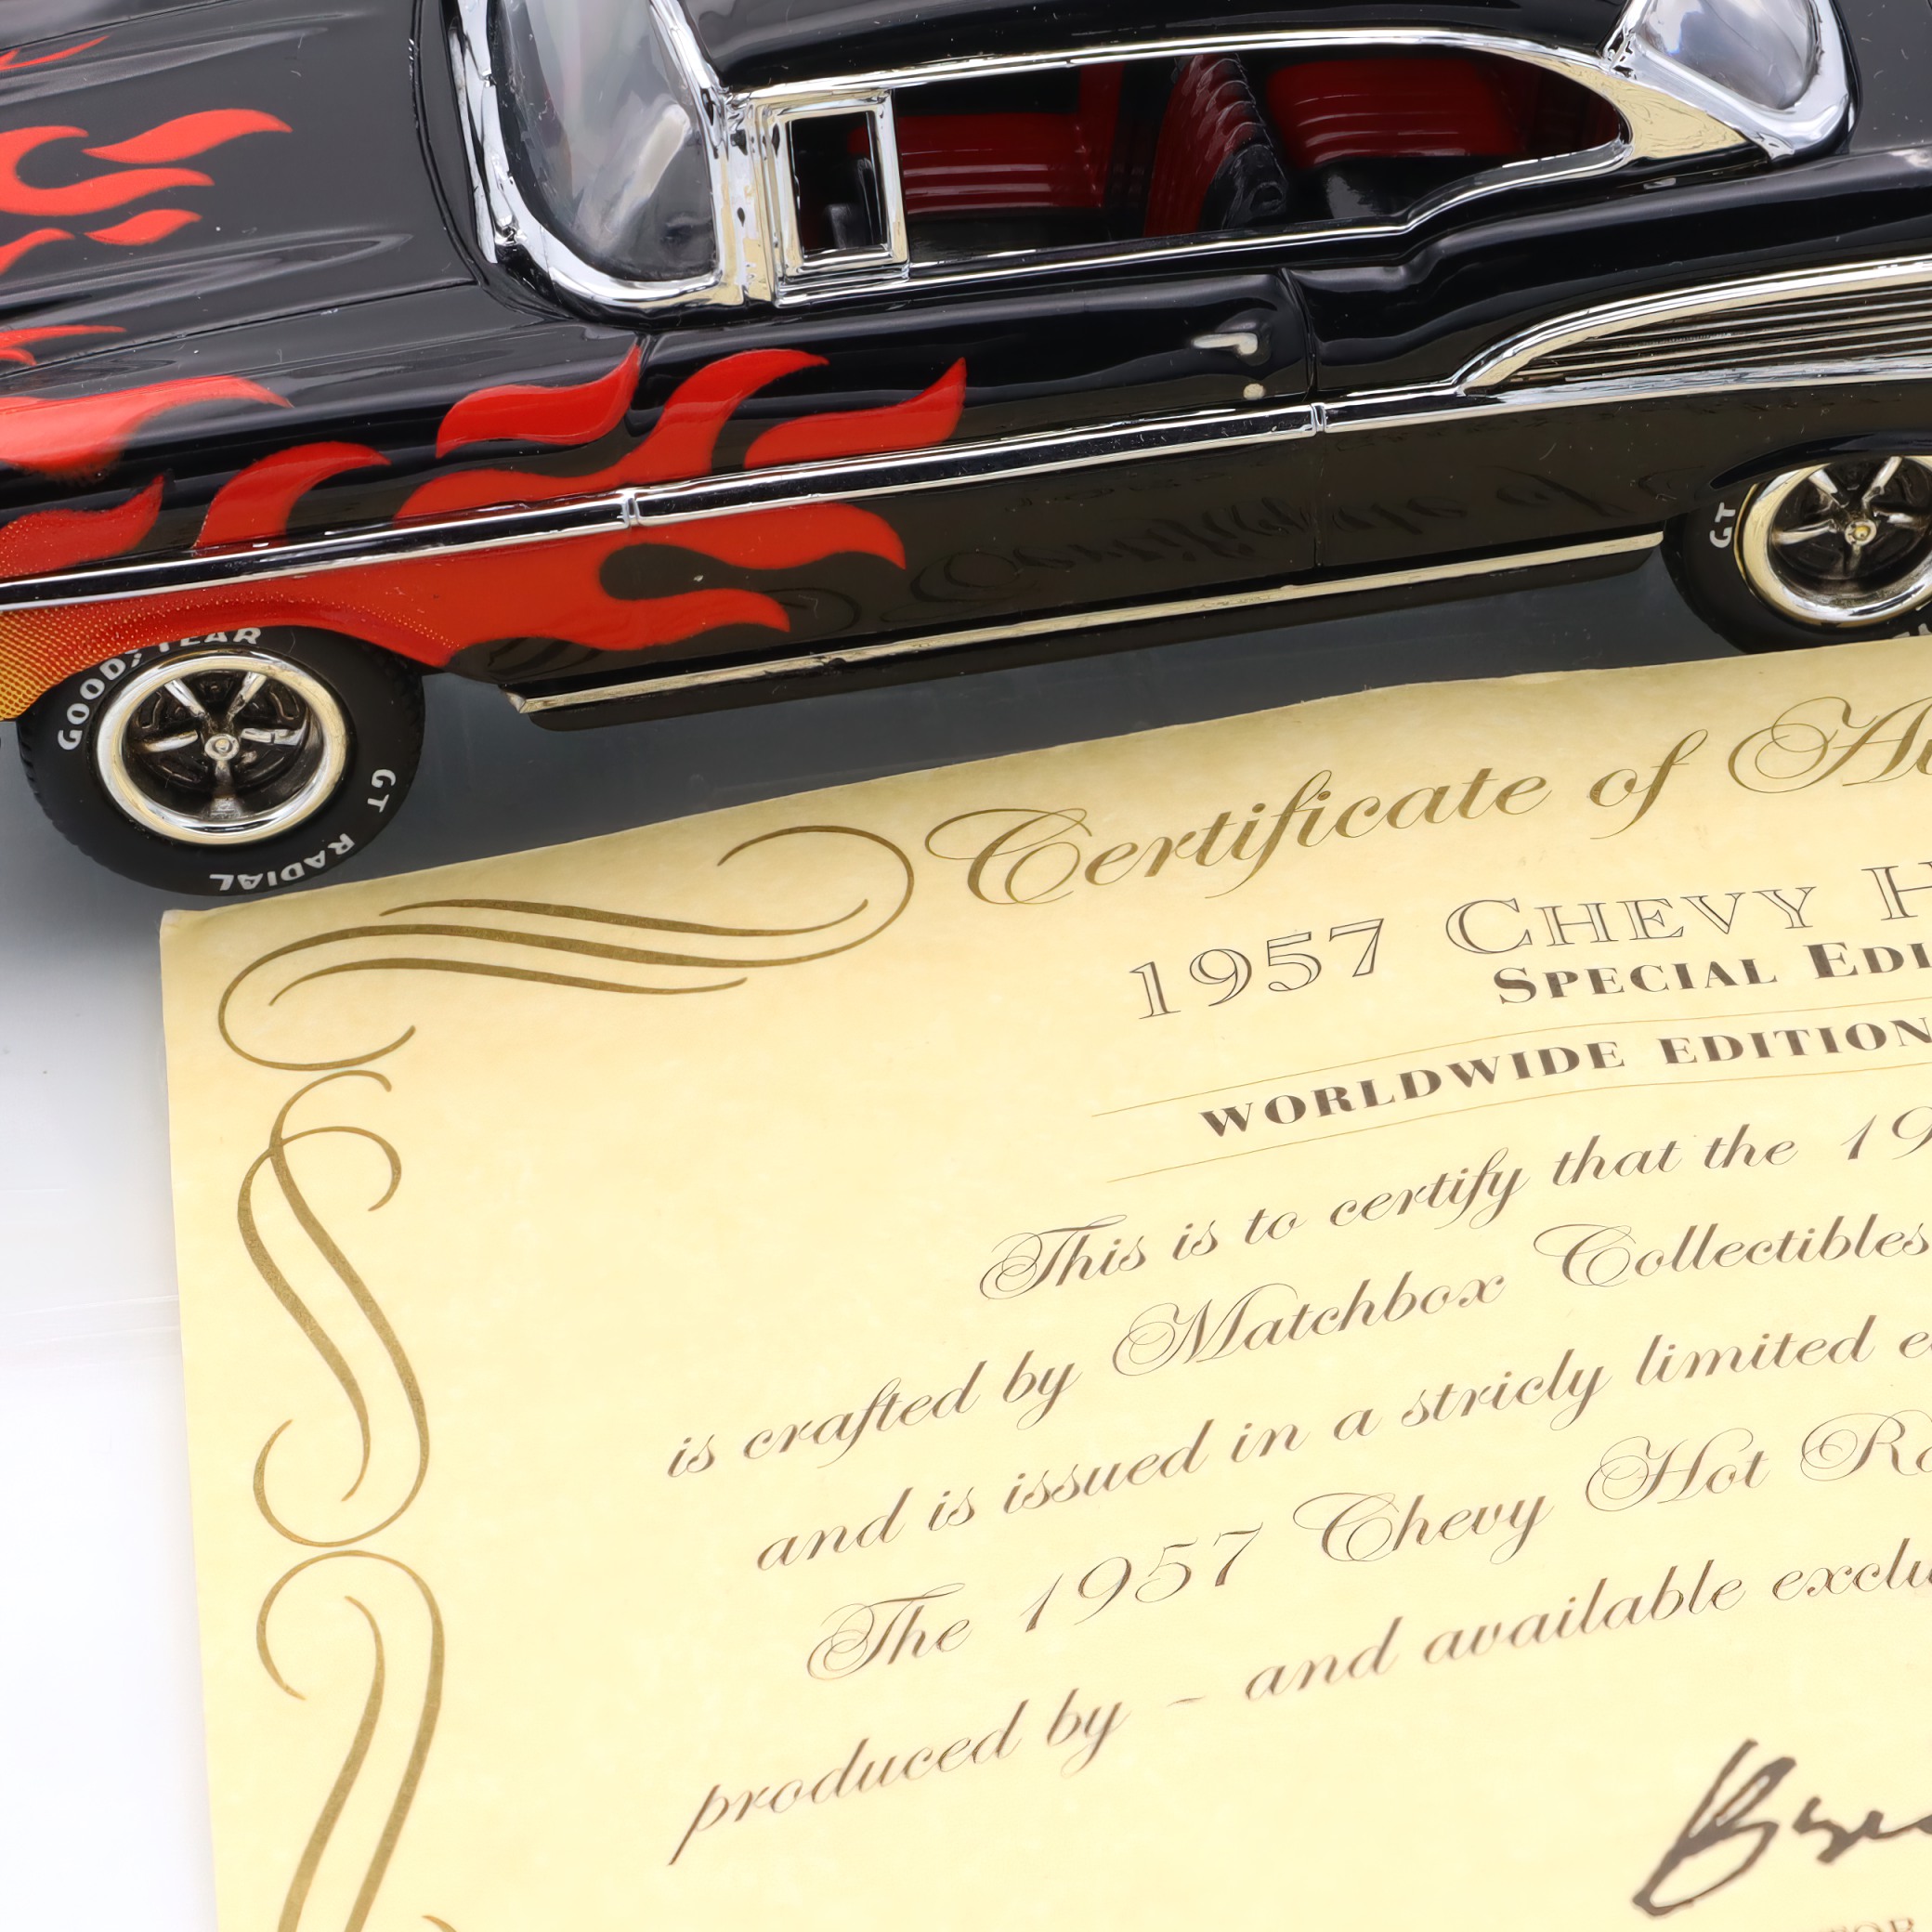 GOODYEAR
GT RADIAL
GT
Certificate of
1957 CHEVY
SPECIAL
WORLDWIDE EDITION
This is to certify that the
is crafted by Matchbox Collectibles
and is issued in a stricly limited
The 1957 Chevy Hot
produced by - and available